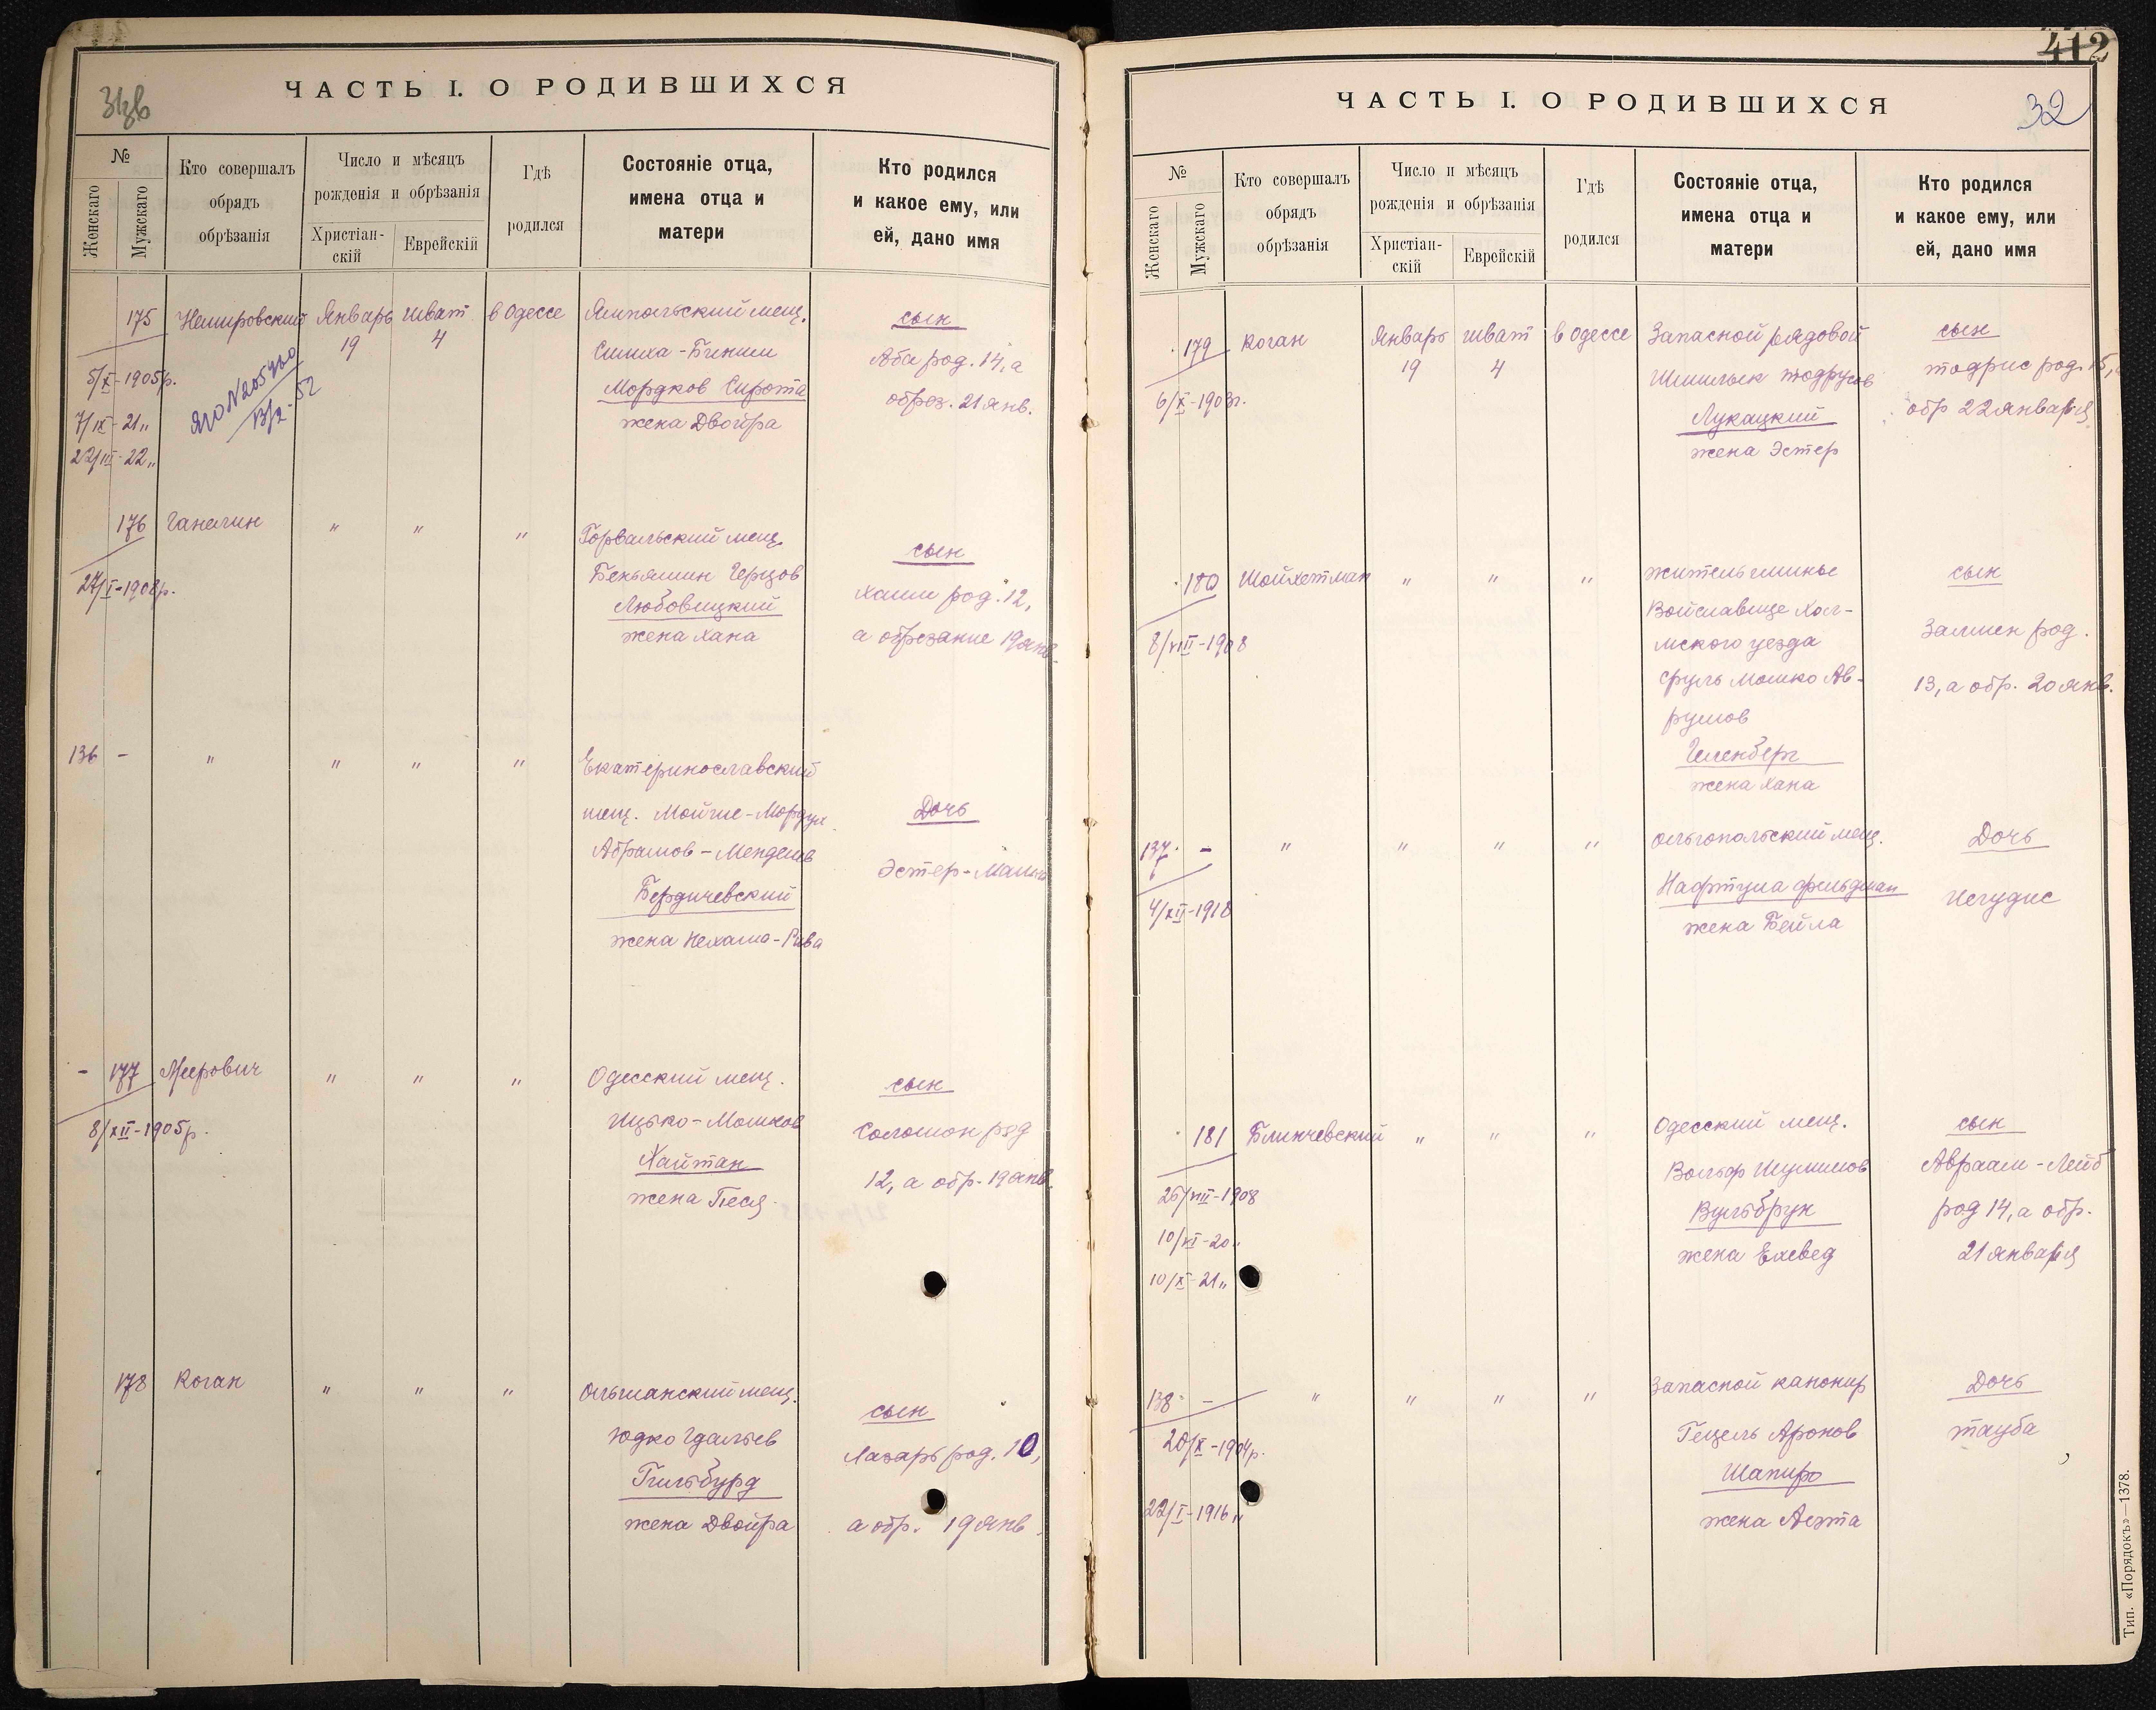 31зв
ЧАСТЬ I. О РОДИВШИХСЯ
№
Женскаго
Мужскаго
Кто совершалъ
обрядъ
обрѣзанія
Число и мѣсяцъ
рожденія и обрѣзанія
Христіан-
скій
Еврейскій
Гдѣ
родился
Состояніе отца,
имена отца и
матери
Кто родился
и какое ему, или
ей, дано имя
175 Немировский Январь шват в Одессе Ямпольский мещ. сын
19 4 Симха-Биним Аба род. 14, а
5/X-1905р. Мордков Сирота обрез. 21 янв.
7/IX-21„ жена Двойра
22/III-22„
176 Ганелин " " " Горвальский мещ. сын
27/I-1908р. Беньямин Герцов Хаим род. 12,
Любовицкий а обрезание 19 янв.
жена Хана
136 - " " " " Екатеринославский
мещ. Мойше-Мордух Дочь
Абрамов-Менделев Эстер-Маня
Бердичевский
жена Нехама-Рива
- 177 Меерович " " " Одесский мещ. сын
8/XII-1905р. Ицько-Мошков Соломон род
Хайтан 12, а обр. 19 янв.
жена Песя
178 Коган " " " Ольшанский мещ. сын
Юдко Гдальев Лазарь род. 10,
Гильбурд
жена Двойра а обр. 19 янв.
412
32
ЧАСТЬ I. О РОДИВШИХСЯ
№
Женскаго
Мужскаго
Кто совершалъ
обрядъ
обрѣзанія
Число и мѣсяцъ
рожденія и обрѣзанія
Христіан-
скій
Еврейскій
Гдѣ
родился
Состояніе отца,
имена отца и
матери
Кто родился
и какое ему, или
ей, дано имя
179 Коган Январь шват в Одессе Запасной рядовой сын
19 4 Шмилык Тодрусов Тодрис род. 15,
6/X-1903г. Лукацкий обр 22 января
жена Эстер
180 Шойхетман " " " житель гмины сын
8/VIII-1908 Войславице Хол-
мского уезда Залмен род.
Сруль Мошко Ав- 13, а обр. 20 янв.
румов
жена Хана
137 - " " " " Ольгопольский мещ. Дочь
4/XII-1918 Нафтула Фельдман Иегудис
жена Бейла
181 Блинчевский " " " Одесский мещ. сын
26/VIII-1908 Вольф Шулимов Авраам-Лейб
10/XI-20„ Вульбрун род 14, а обр.
10/X-21„ жена Ехевед 21 января
138 - " " " " Запасной канонир Дочь
20/X-1904р. Гецель Аронов Тауба
22/I-1916„ Шапиро
жена Аєта
Тип. «Порядокъ»—1378.